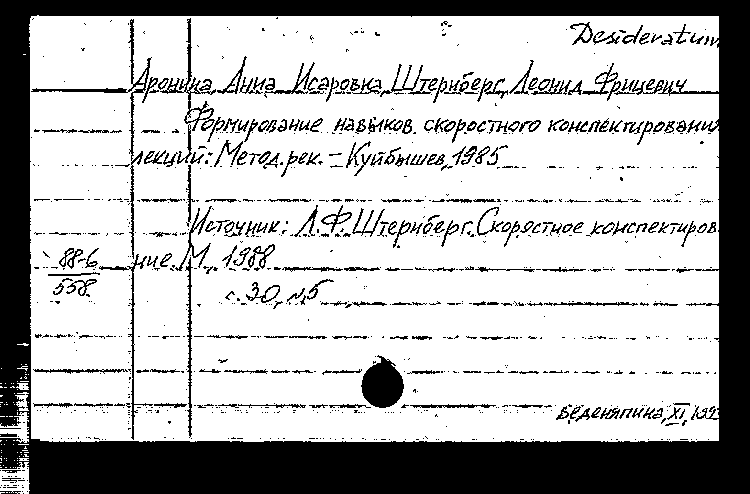 Desideratum
Аронина, Анна Исаровна, Штернберг, Леонид Фрицевич
Формирование навыков скоростного конспектирования
лекций: Метод. рек. – Куйбышев, 1985
Источник: Л.Ф. Штернберг. Скоростное конспектирова
88-6 ние. М., 1988
558 с. 30, н.5
Беденяпина, XI, 199